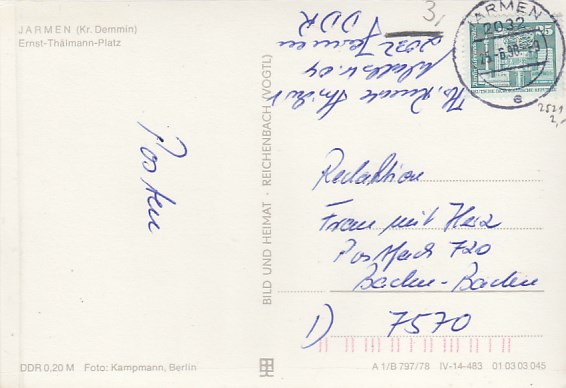 JARMEN (Kr. Demmin)
Ernst-Thälmann-Platz
3,
JARMEN
2032
25
DEUTSCHE DEMOKRATISCHE REPUBLIK
e
2521
2,-
2032 Jarmen
DDR
Posten
BILD UND HEIMAT · REICHENBACH (VOGTL)
Redaktion
Frau mit Herz
Postfach 720
Baden-Baden
D) 7570
DDR 0,20 M Foto: Kampmann, Berlin
A 1/B 797/78 IV-14-483 01 03 03 045